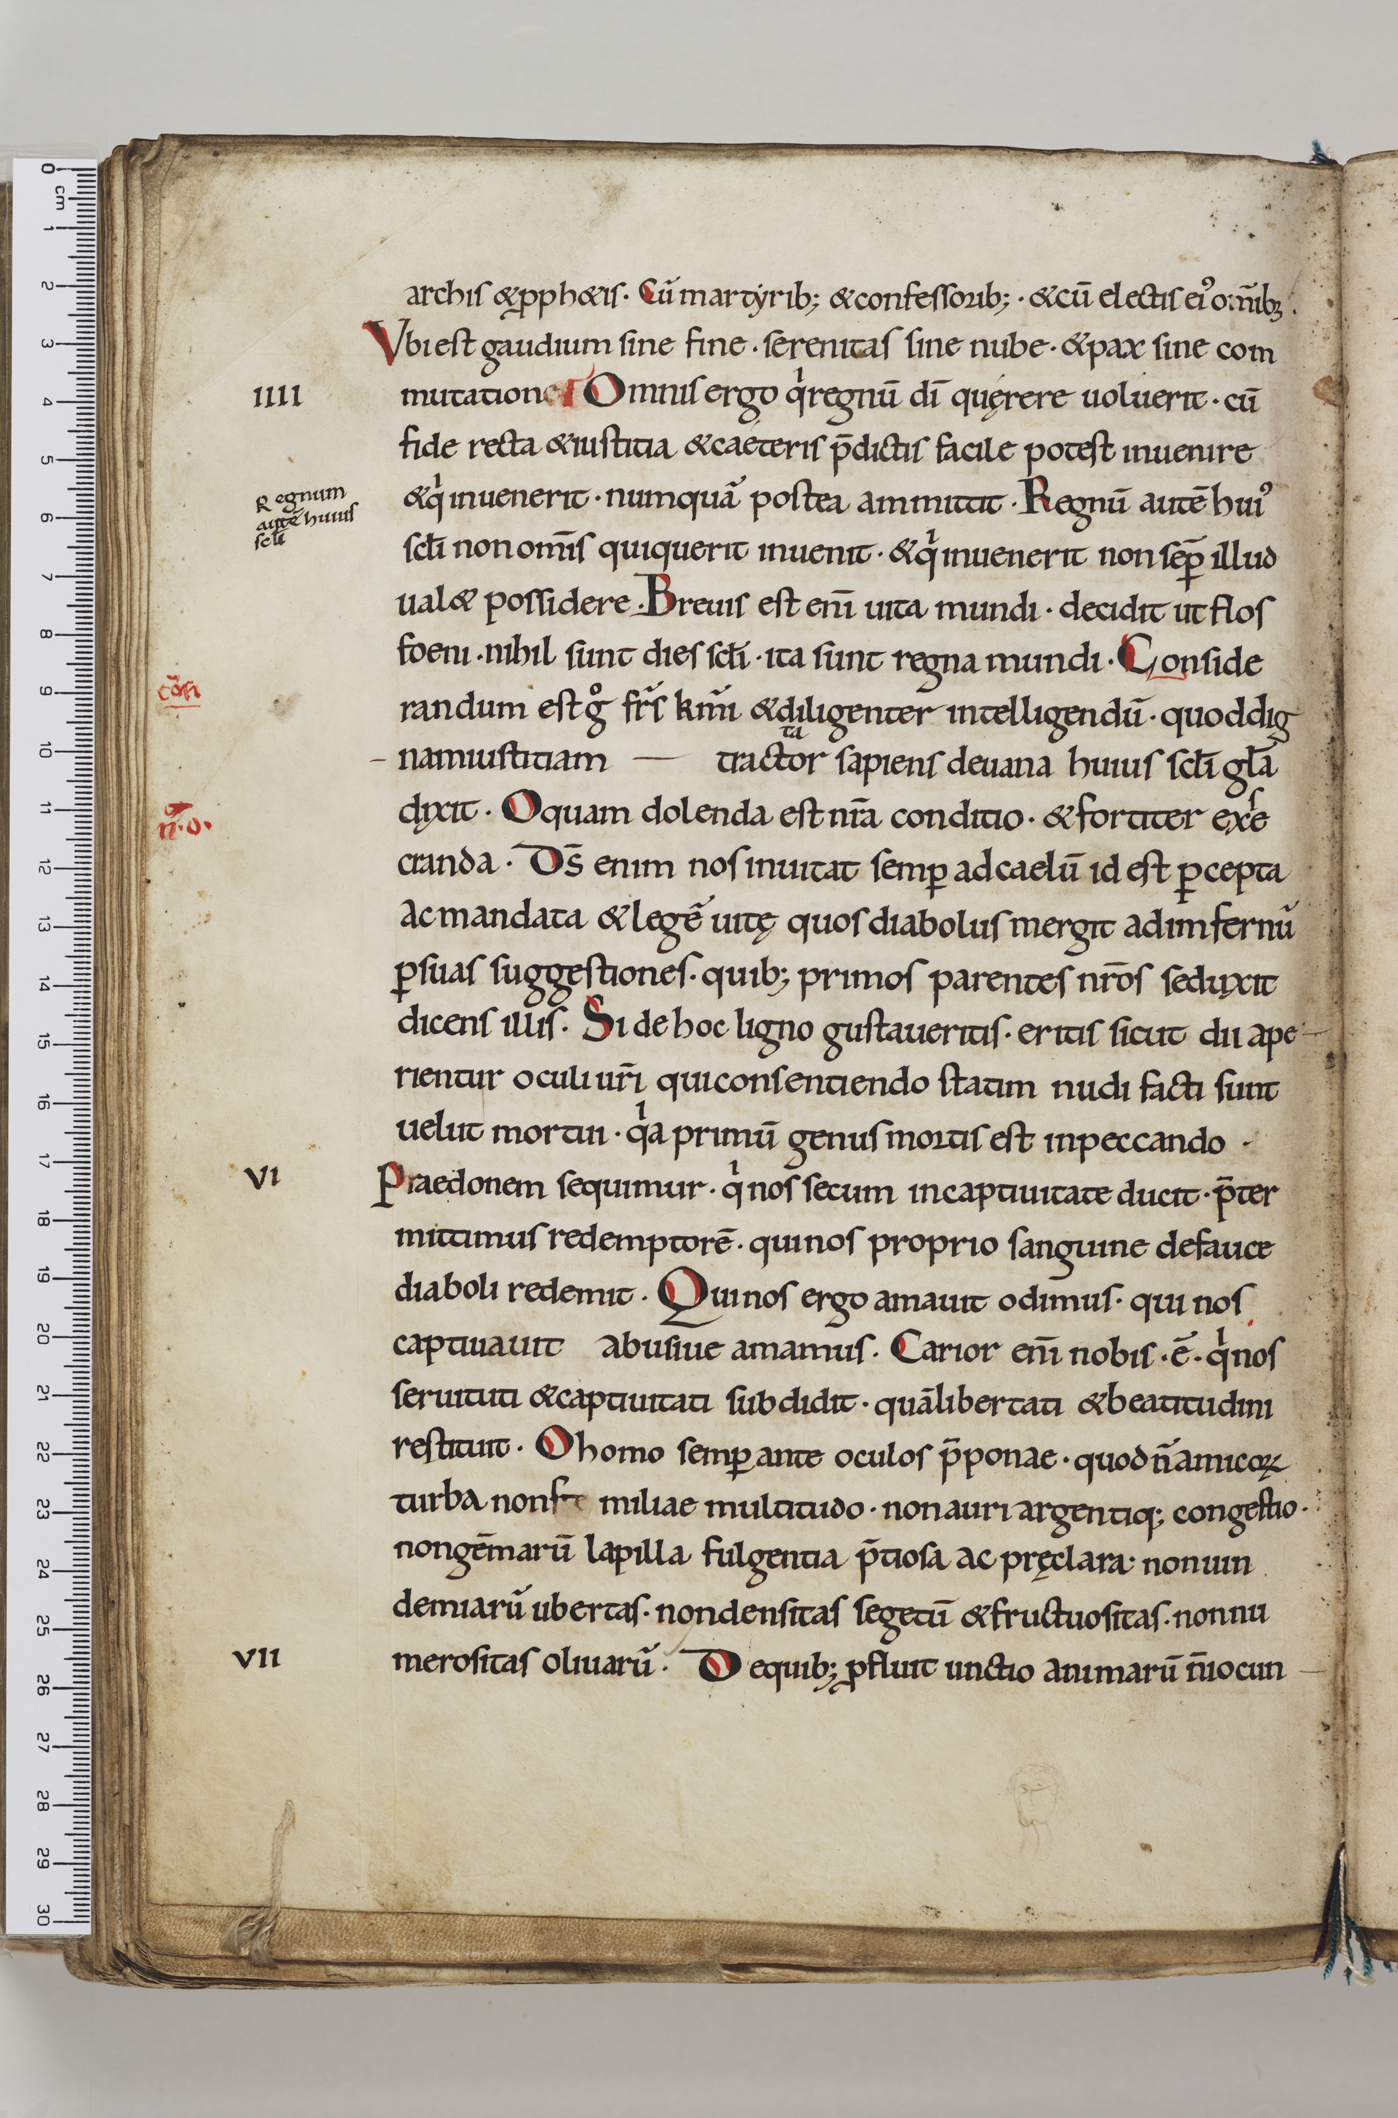 archis &p̱ph&is· Cū martyrib; &confessorib; · &cū electis eiꝰ om̄ibꝫ.
Vbi est gaudium sine fine · serenitas sine nube · &pax sine com
IIII
mutatione Omnis ergo qͥ regnū dī quęrere uoluerit · cū
fide recta &iustitia &caeteris p̄dictis facile potest inuenire
&qͥ inuenerit · numquā postea ammittit · Regnū autē huiꝰ
Regnum
autē huius
scłi
scłi non om̄is quiquerit inuenit · &qͥ inuenerit non semꝑ illud
ual& possidere · Breuis est enī uita mundi · decidit ut flos
foeni · nihil sunt dies scłi · ita sunt regna mundi · Conside
randum est gͦ fr̄s km̄i &diligenter intelligendū · quod dig
namiustitiam — tractor sapiens deuana huius scłi gła
ta
dyxit · O quam dolenda est nr̄a conditio · &fortiter exse
n̄·o·
cranda · Ds̄ enim nos inuitat semꝑ adcaelū id est ꝑcepta
ac mandata &legē uitę quos diabolus mergit ad imfernū
ꝑsuas suggestiones · quib; primos parentes nr̄os seduxit
dicens illis · Si de hoc ligno gustaueritis · eritis sicut dii ape
rientur oculi ur̄i qui consentiendo statim nudi facti sunt
uelut mortui · qͥa primū genus mortis est inpeccando ·
VI
Praedonem sequimur · qͥ nos secum incaptiuitate ducit · p̄ter
mittimus redemptorē · quinos proprio sanguine defauce
diaboli redemit · Qui nos ergo amauit odimus · qui nos
captiuauit abusiue amamus · Carior enī nobis · ē · qͥ nos
seruituti &captiuitati subdidit · quā libertati &beatitudini
restituit · O homo semꝑ ante oculos p̄ponae · quod n̄ amicoꝝ
turba non miliae multitudo · non auri argentiq; congestio ·
non gēmarū lapilla fulgentia p̄tiosa ac pręclara · non uin
demiarū ubertas · non densitas segetū &fructuositas · non nu
VII
merositas oliuarū · De quib; ꝓfluit unctio animarū n̄ iocun